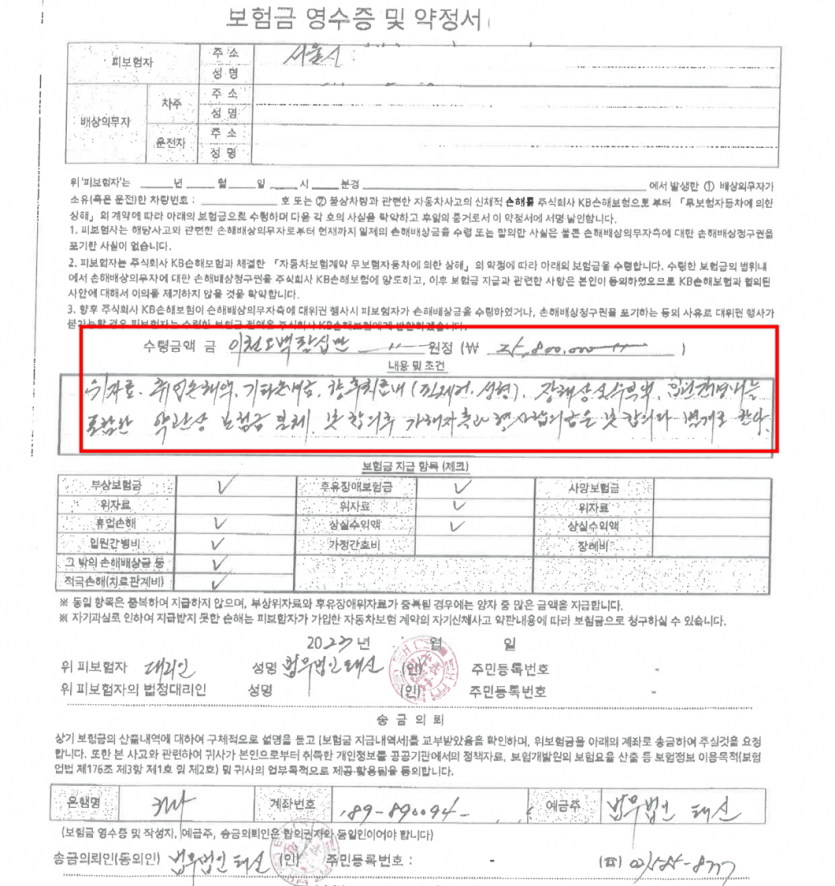 보험금 영수증 및 약정서
피보험자 주 소 서울시
성 명
배상의무자 차주 주 소
성 명
운전자 주 소
성 명
위 '피보험자'는 ____년 ____월 ____일 ____시 ____분경 에서 발생한 ① 배상의무자가
소유(혹은 운전)한 차량번호 : 호 또는 ② 불상차량과 관련한 자동차사고의 신체적 손해를 주식회사 KB손해보험으로 부터 「무보험자동차에 의한
상해」의 계약에 따라 아래의 보험금으로 수령하며 다음 각 호의 사실을 확약하고 후일의 증거로서 이 약정서에 서명 날인합니다.
1. 피보험자는 해당사고와 관련한 손해배상의무자로부터 현재까지 일체의 손해배상금을 수령 또는 합의한 사실은 물론 손해배상의무자측에 대한 손해배상청구권을
포기한 사실이 없습니다.
2. 피보험자는 주식회사 KB손해보험과 체결한 「자동차보험계약 무보험자동차에 의한 상해」의 약정에 따라 아래의 보험금을 수령합니다. 수령한 보험금의 범위내
에서 손해배상의무자에 대한 손해배상청구권을 주식회사 KB손해보험에 양도하고, 이후 보험금 지급과 관련한 사항은 본인이 동의하였으므로 KB손해보험과 합의된
사안에 대해서 이의를 제기하지 않을 것을 확약합니다.
3. 향후 주식회사 KB손해보험이 손해배상의무자측에 대위권 행사시 피보험자가 손해배상금을 수령하였거나, 손해배상청구권을 포기하는 등의 사유로 대위권 행사가
불가능할 경우 피보험자는 수령한 보험금 전액을 주식회사 KB손해보험에게 반환하겠습니다.
수령금액 금 이천오백팔십만 원정 (₩ 25,800,000 )
내용 및 조건
위자료, 휴업손해액, 기타손배금, 향후치료비 (핀제거, 성형), 장해상실수익액, 입원간병비등
포함한 약관상 보험금 일체. 본 합의후 가해자측과 형사합의금은 본 합의와 별개로 한다.
보험금 지급 항목 (체크)
부상보험금 ✓ 후유장애보험금 ✓ 사망보험금
위자료 위자료 ✓ 위자료
휴업손해 ✓ 상실수익액 ✓ 상실수익액
입원간병비 ✓ 가정간호비 장례비
그 밖의 손해배상금 등 ✓
적극손해(치료관계비) ✓
※ 동일 항목은 중복하여 지급하지 않으며, 부상위자료와 후유장애위자료가 중복될 경우에는 양자 중 많은 금액을 지급합니다.
※ 자기과실로 인하여 지급받지 못한 손해는 피보험자가 가입한 자동차보험 계약의 자기신체사고 약관내용에 따라 보험금으로 청구하실 수 있습니다.
2023년 월 일
위 피보험자 대리인 성명 법무법인 태신 (인) 주민등록번호 -
위 피보험자의 법정대리인 성명 (인) 주민등록번호 -
송 금 의 뢰
상기 보험금의 산출내역에 대하여 구체적으로 설명을 듣고 (보험금 지급내역서)를 교부받았음을 확인하며, 위보험금을 아래의 계좌로 송금하여 주실것을 요청
합니다. 또한 본 사고와 관련하여 귀사가 본인으로부터 취득한 개인정보를 공공기관에서의 정책자료, 보험개발원의 보험요율 산출 등 보험정보 이용목적(보험
업법 제176조 제3항 제1호 및 제2호) 및 귀사의 업무목적으로 제공·활용됨을 동의합니다.
은행명 하나 계좌번호 189-890094- 예금주 법무법인 태신
(보험금 영수증 및 작성지, 예금주, 송금의뢰인은 합의권자와 동일인이어야 합니다)
송금의뢰인(동의인) 법무법인 태신 (인) 주민등록번호 : - (☎)